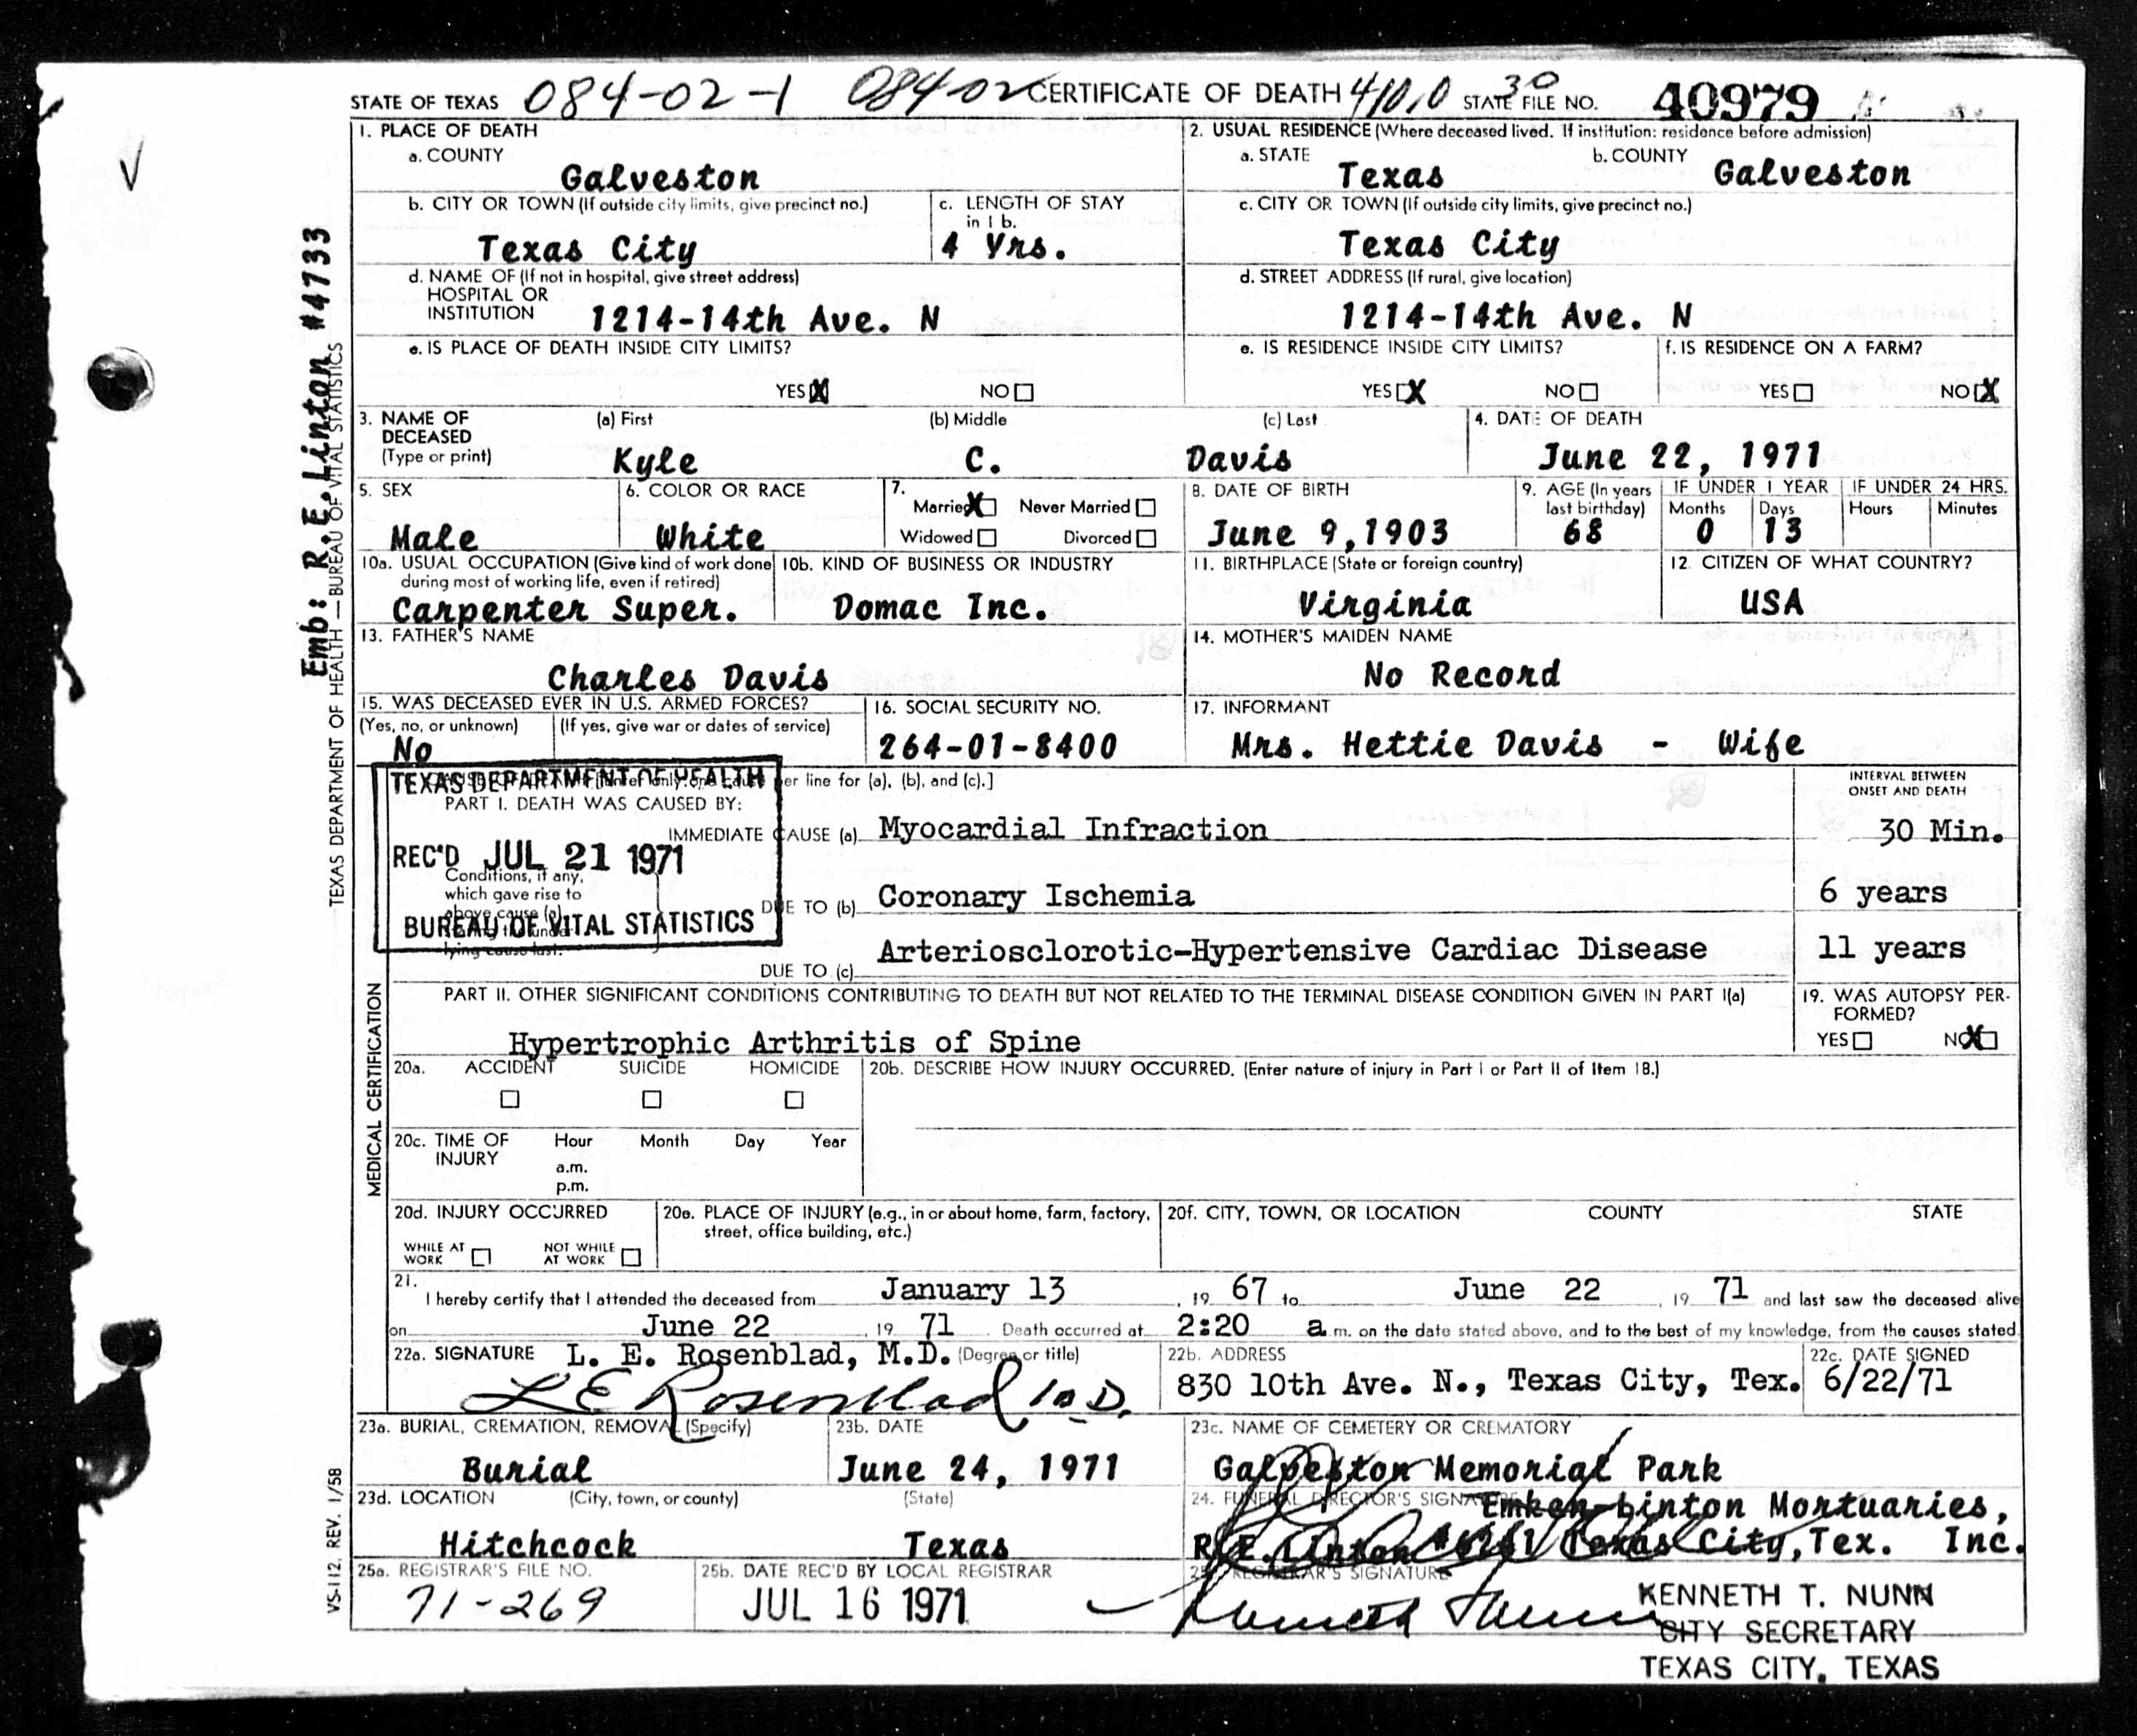 STATE OF TEXAS 084-02-1 084-02 CERTIFICATE OF DEATH 410.0 30 STATE FILE NO. 40979
1. PLACE OF DEATH
a. COUNTY
Galveston
2. USUAL RESIDENCE (Where deceased lived. If institution: residence before admission)
a. STATE b. COUNTY
Texas Galveston
b. CITY OR TOWN (If outside city limits, give precinct no.)
Texas City
c. LENGTH OF STAY
in 1 b.
4 Yrs.
c. CITY OR TOWN (If outside city limits, give precinct no.)
Texas City
d. NAME OF (If not in hospital, give street address)
HOSPITAL OR
INSTITUTION 1214-14th Ave. N
d. STREET ADDRESS (If rural, give location)
1214-14th Ave. N
e. IS PLACE OF DEATH INSIDE CITY LIMITS?
YES X NO
e. IS RESIDENCE INSIDE CITY LIMITS?
YES X NO
f. IS RESIDENCE ON A FARM?
YES NO X
3. NAME OF (a) First (b) Middle (c) Last
DECEASED
(Type or print) Kyle C. Davis
4. DATE OF DEATH
June 22, 1971
5. SEX
Male
6. COLOR OR RACE
White
7.
Married X Never Married
Widowed Divorced
8. DATE OF BIRTH
June 9, 1903
9. AGE (In years
last birthday)
68
IF UNDER 1 YEAR
Months Days
0 13
IF UNDER 24 HRS.
Hours Minutes
10a. USUAL OCCUPATION (Give kind of work done
during most of working life, even if retired)
Carpenter Super.
10b. KIND OF BUSINESS OR INDUSTRY
Domac Inc.
11. BIRTHPLACE (State or foreign country)
Virginia
12. CITIZEN OF WHAT COUNTRY?
USA
13. FATHER'S NAME
Charles Davis
14. MOTHER'S MAIDEN NAME
No Record
15. WAS DECEASED EVER IN U.S. ARMED FORCES?
(Yes, no, or unknown) (If yes, give war or dates of service)
No
16. SOCIAL SECURITY NO.
264-01-8400
17. INFORMANT
Mrs. Hettie Davis - Wife
TEXAS DEPARTMENT OF HEALTH
REC'D JUL 21 1971
BUREAU OF VITAL STATISTICS
per line for (a), (b), and (c).]
INTERVAL BETWEEN
ONSET AND DEATH
PART I. DEATH WAS CAUSED BY:
IMMEDIATE CAUSE (a) Myocardial Infraction 30 Min.
Conditions, if any,
which gave rise to
above cause (a),
lying cause last.
DUE TO (b) Coronary Ischemia 6 years
DUE TO (c) Arteriosclorotic-Hypertensive Cardiac Disease 11 years
PART II. OTHER SIGNIFICANT CONDITIONS CONTRIBUTING TO DEATH BUT NOT RELATED TO THE TERMINAL DISEASE CONDITION GIVEN IN PART I(a)
Hypertrophic Arthritis of Spine
19. WAS AUTOPSY PER-
FORMED?
YES NO X
20a. ACCIDENT SUICIDE HOMICIDE
20b. DESCRIBE HOW INJURY OCCURRED. (Enter nature of injury in Part I or Part II of Item 18.)
20c. TIME OF Hour Month Day Year
INJURY
a.m.
p.m.
20d. INJURY OCCURRED
WHILE AT
WORK
NOT WHILE
AT WORK
20e. PLACE OF INJURY (e.g., in or about home, farm, factory,
street, office building, etc.)
20f. CITY, TOWN, OR LOCATION COUNTY STATE
21.
I hereby certify that I attended the deceased from January 13, 19 67 to June 22, 19 71 and last saw the deceased alive
on June 22, 19 71. Death occurred at 2:20 a.m. on the date stated above, and to the best of my knowledge, from the causes stated.
22a. SIGNATURE L. E. Rosenblad, M.D. (Degree or title)
L E Rosenblad M.D.
22b. ADDRESS
830 10th Ave. N., Texas City, Tex.
22c. DATE SIGNED
6/22/71
23a. BURIAL, CREMATION, REMOVAL (Specify)
Burial
23b. DATE
June 24, 1971
23c. NAME OF CEMETERY OR CREMATORY
Galveston Memorial Park
23d. LOCATION (City, town, or county) (State)
Hitchcock Texas
24. FUNERAL DIRECTOR'S SIGNATURE
Emken-Linton Mortuaries,
R.E. Linton Texas City, Tex. Inc.
25a. REGISTRAR'S FILE NO.
71-269
25b. DATE REC'D BY LOCAL REGISTRAR
JUL 16 1971
REGISTRAR'S SIGNATURE
Kenneth Nunn
KENNETH T. NUNN
CITY SECRETARY
TEXAS CITY, TEXAS
Emb: R.E. Linton #4733
TEXAS DEPARTMENT OF HEALTH — BUREAU OF VITAL STATISTICS
MEDICAL CERTIFICATION
VS-112, REV. 1/58